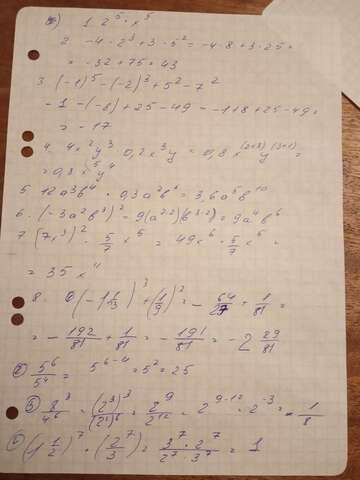 1. 2⁵ · x⁵
2. -4 · 2³ + 3 · 5² = -4 · 8 + 3 · 25 =
= -32 + 75 = 43
3. (-1)⁵ - (-2)³ + 5² - 7²
-1 - (-8) + 25 - 49 = -1+8+25-49=
= -17
4. 4x²y³ 0,2x³y = 0,8x⁽²⁺³⁾y⁽³⁺¹⁾ =
= 0,8x⁵y⁴
5. 12a³b⁴ · 0,3a²b⁶ = 3,6a⁵b¹⁰
6. (-3a²b³)² = 9(a²·²)(b³·²) = 9a⁴b⁶
7. (7x³)² · 5/7 x⁵ = 49x⁶ · 5/7 x⁵ =
= 35x¹¹
8. (-1 1/3)³ + (1/9)² = -64/27 + 1/81 =
= -192/81 + 1/81 = -191/81 = -2 29/81
5⁶/5⁴ = 5⁶⁻⁴ = 5² = 25
8³/4⁶ = (2³)³/(2²)⁶ = 2⁹/2¹² = 2⁹⁻¹² = 2⁻³ = 1/8
(1 1/2)⁷ · (2/3)⁷ = 3⁷·2⁷/2⁷·3⁷ = 1